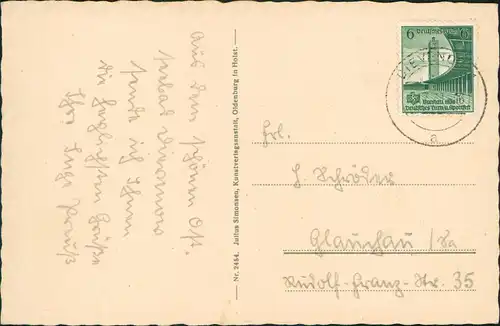 Aus dem schönen Ost-
seebad Dievenow
sende ich Ihnen
die herzlichsten Grüße
Ihre
Nr. 2464. Julius Simonsen, Kunstverlagsanstalt, Oldenburg in Holst.
6 Deutsches 6
Breslau 1938
Deutsches Turn- u. Sportfest
DIEVENOW
a
Frl.
Schröder
Glauchau /Sa
Rudolf-Franz-Str. 35